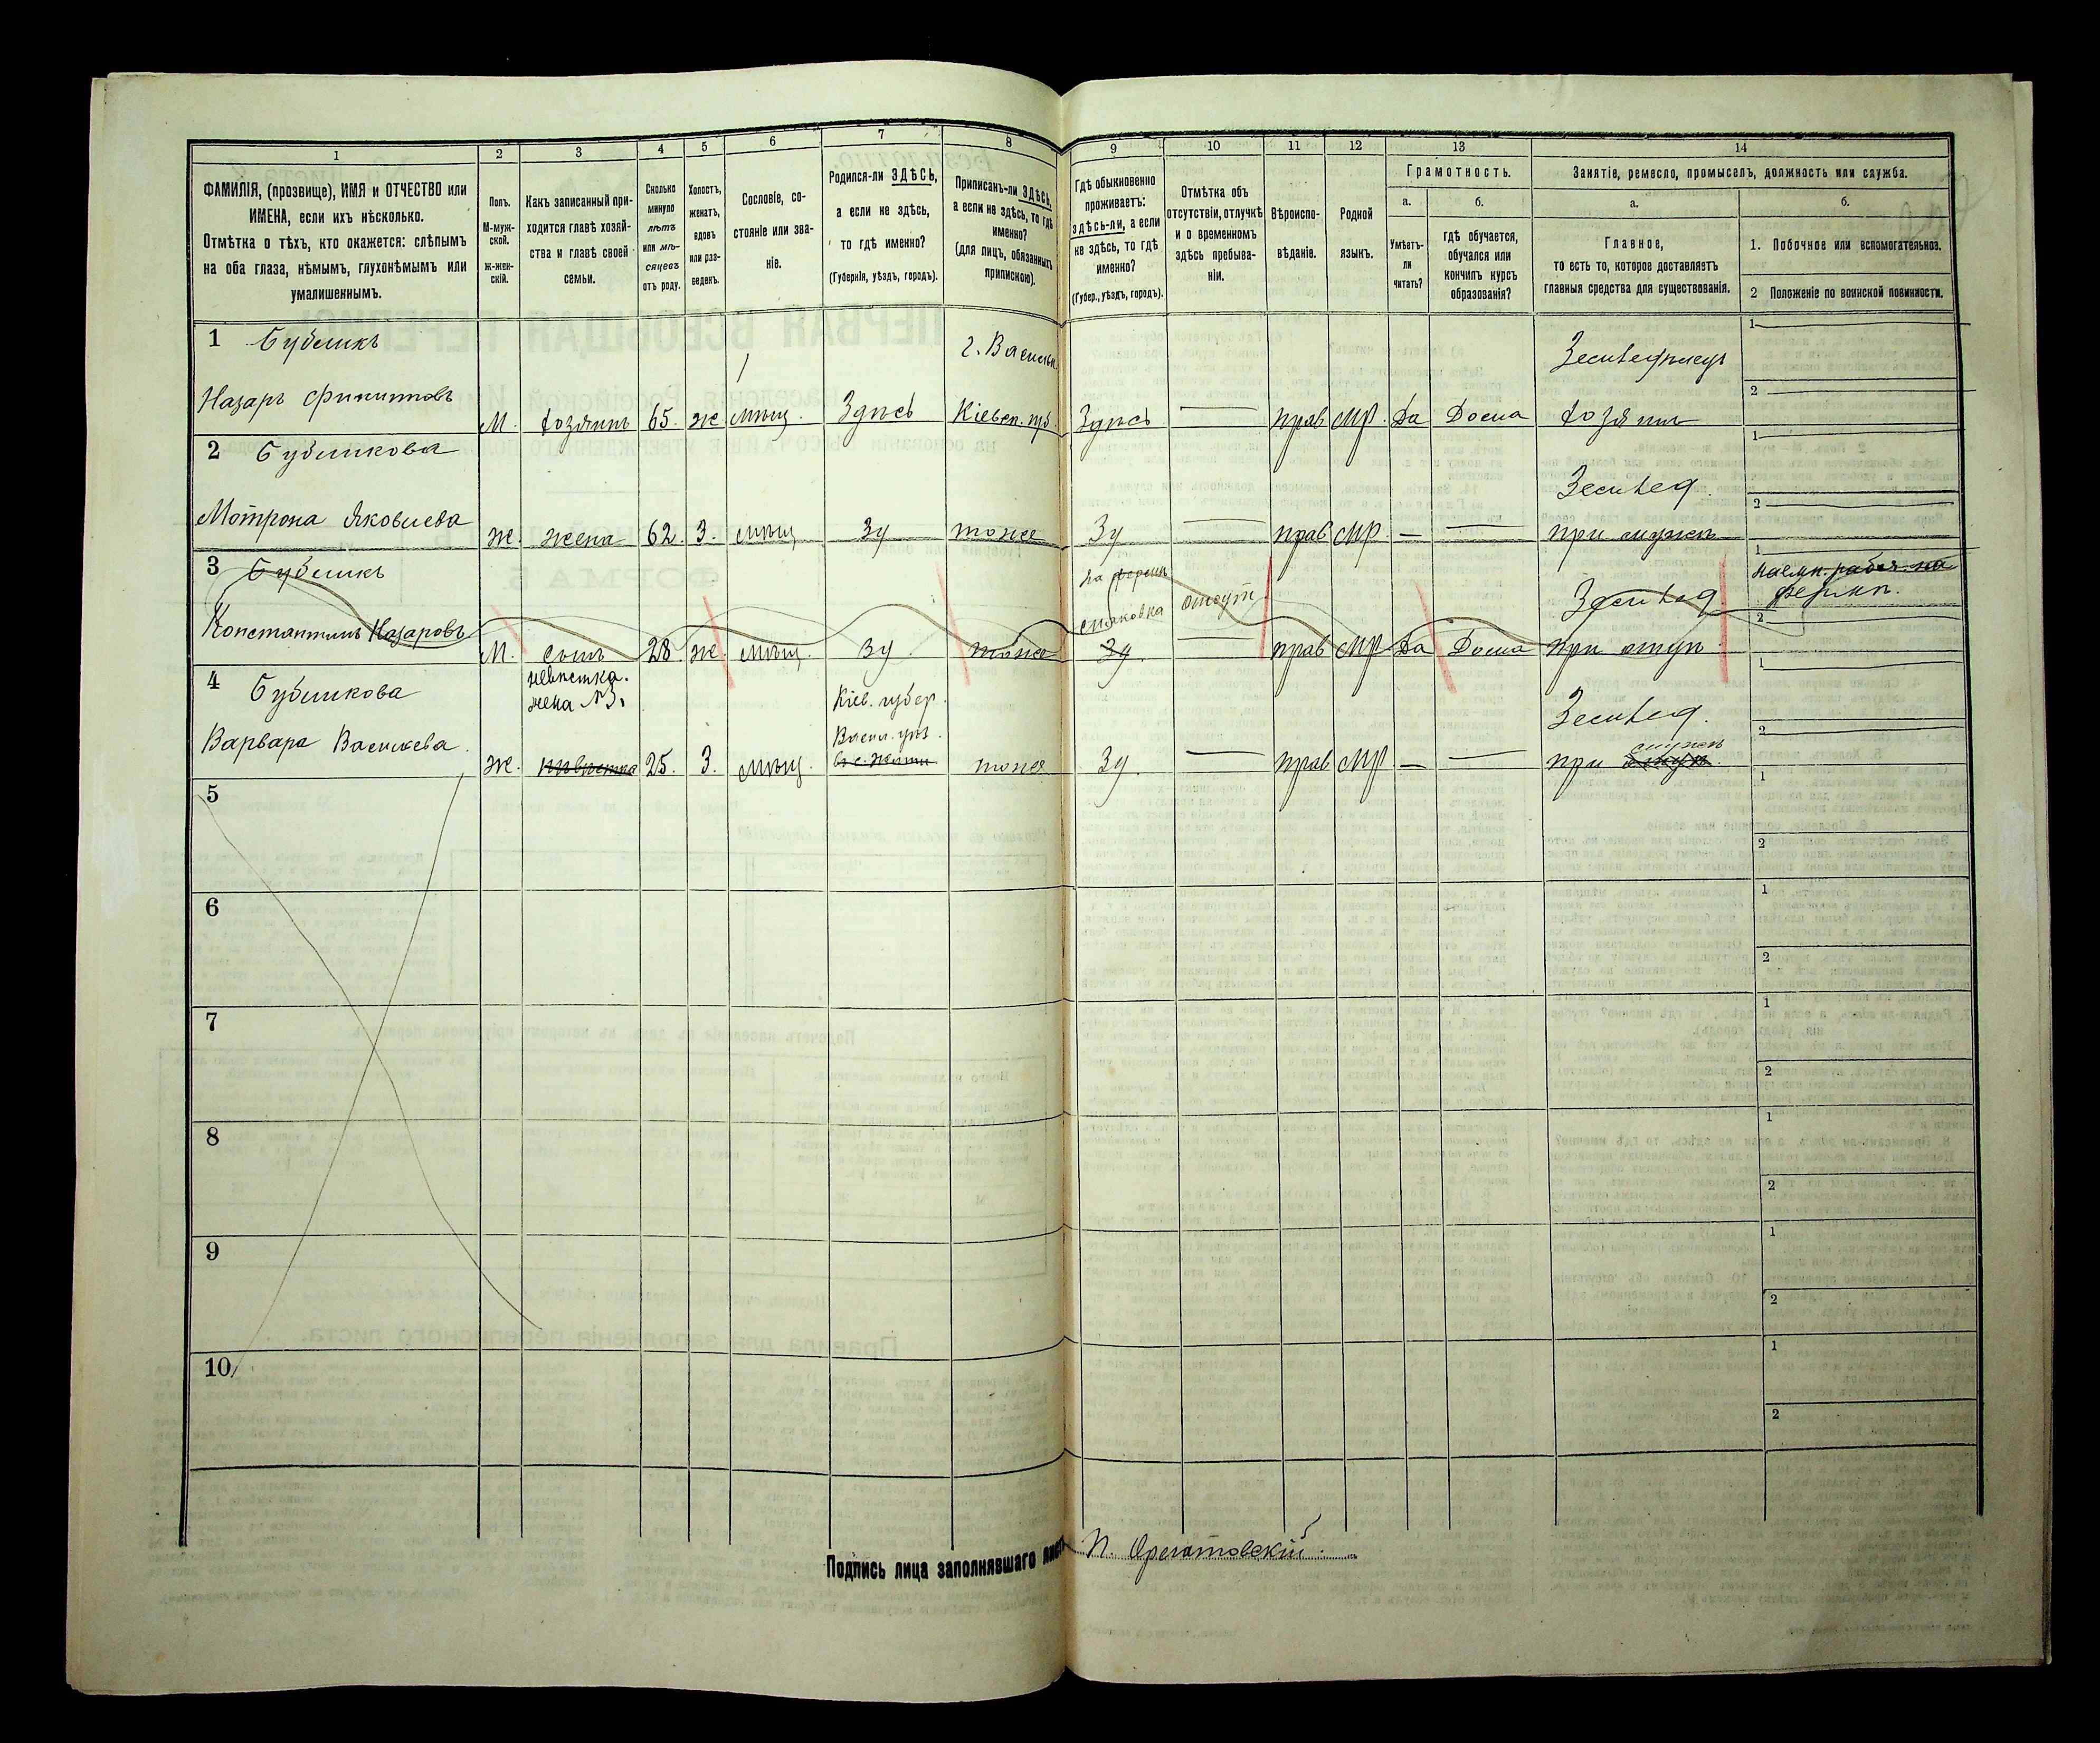 1
2
3
4
5
6
7
8
ФАМИЛІЯ, (прозвище), ИМЯ и ОТЧЕСТВО или
ИМЕНА, если ихъ нѣсколько.
Отмѣтка о тѣхъ, кто окажется: слѣпымъ
на оба глаза, нѣмымъ, глухонѣмымъ или
умалишеннымъ.
Полъ.
М-муж-
ской.
ж-жен-
скій.
Какъ записанный при-
ходится главѣ хозяй-
ства и главѣ своей
семьи.
Сколько
минуло
лѣтъ
или мѣ-
сяцевъ
отъ роду.
Холостъ,
женатъ,
вдовъ
или раз-
веденъ.
Сословіе, со-
стояніе или зва-
ніе.
Родился-ли ЗДѢСЬ,
а если не здѣсь,
то гдѣ именно?
(Губернія, уѣздъ, городъ).
Приписанъ-ли ЗДѢСЬ,
а если не здѣсь, то гдѣ
именно?
(для лицъ, обязанныхъ
припискою).
9
10
11
12
13
14
Гдѣ обыкновенно
проживаетъ:
здѣсь-ли, а если
не здѣсь, то гдѣ
именно?
(Губер., уѣздъ, городъ).
Отмѣтка объ
отсутствіи, отлучкѣ
и о временномъ
здѣсь пребыва-
ніи.
Вѣроиспо-
вѣданіе.
Родной
языкъ.
Грамотность.
а.
б.
Умѣетъ-
ли
читать?
гдѣ обучается,
обучался или
кончилъ курсъ
образованія?
Занятіе, ремесло, промыселъ, должность или служба.
а.
б.
Главное,
то есть то, которое доставляетъ
главныя средства для существованія.
1. Побочное или вспомогательное.
2 Положеніе по воинской повинности.
1 Бубликъ
Назаръ
М. хозяинъ 65. ж. мѣщ. Здѣсь
г. Васильк.
Кіевск. губ.
Здѣсь — прав МР. Да Дома
хозяинъ
1
2
2 Бубликова
Мотрона Яковлева
ж. жена 62. З. мѣщ зд тоже
Зд — прав МР. — —
Землед.
при мужѣ
1
2
3 Бубликъ
Константинъ Назаровъ
М. сынъ 28. ж. мѣщ. зд. тоже
на фермѣ
зд.
отсут.
— прав МР Да Дома
Землед
при отцѣ
1
наемн. рабоч. на
фермѣ.
2
4 Бубликова
Варвара Васильева.
невѣстка.
жена №3.
Ж. невѣстка 25. З. мѣщ.
Кіев. губер.
Васил. уѣз.
тоже
Зд. — прав МР — —
Землед.
мужѣ
при отцѣ.
1
2
5
1
2
6
1
2
7
1
2
8
1
2
9
1
2
10
1
2
Подпись лица заполнявшаго листъ